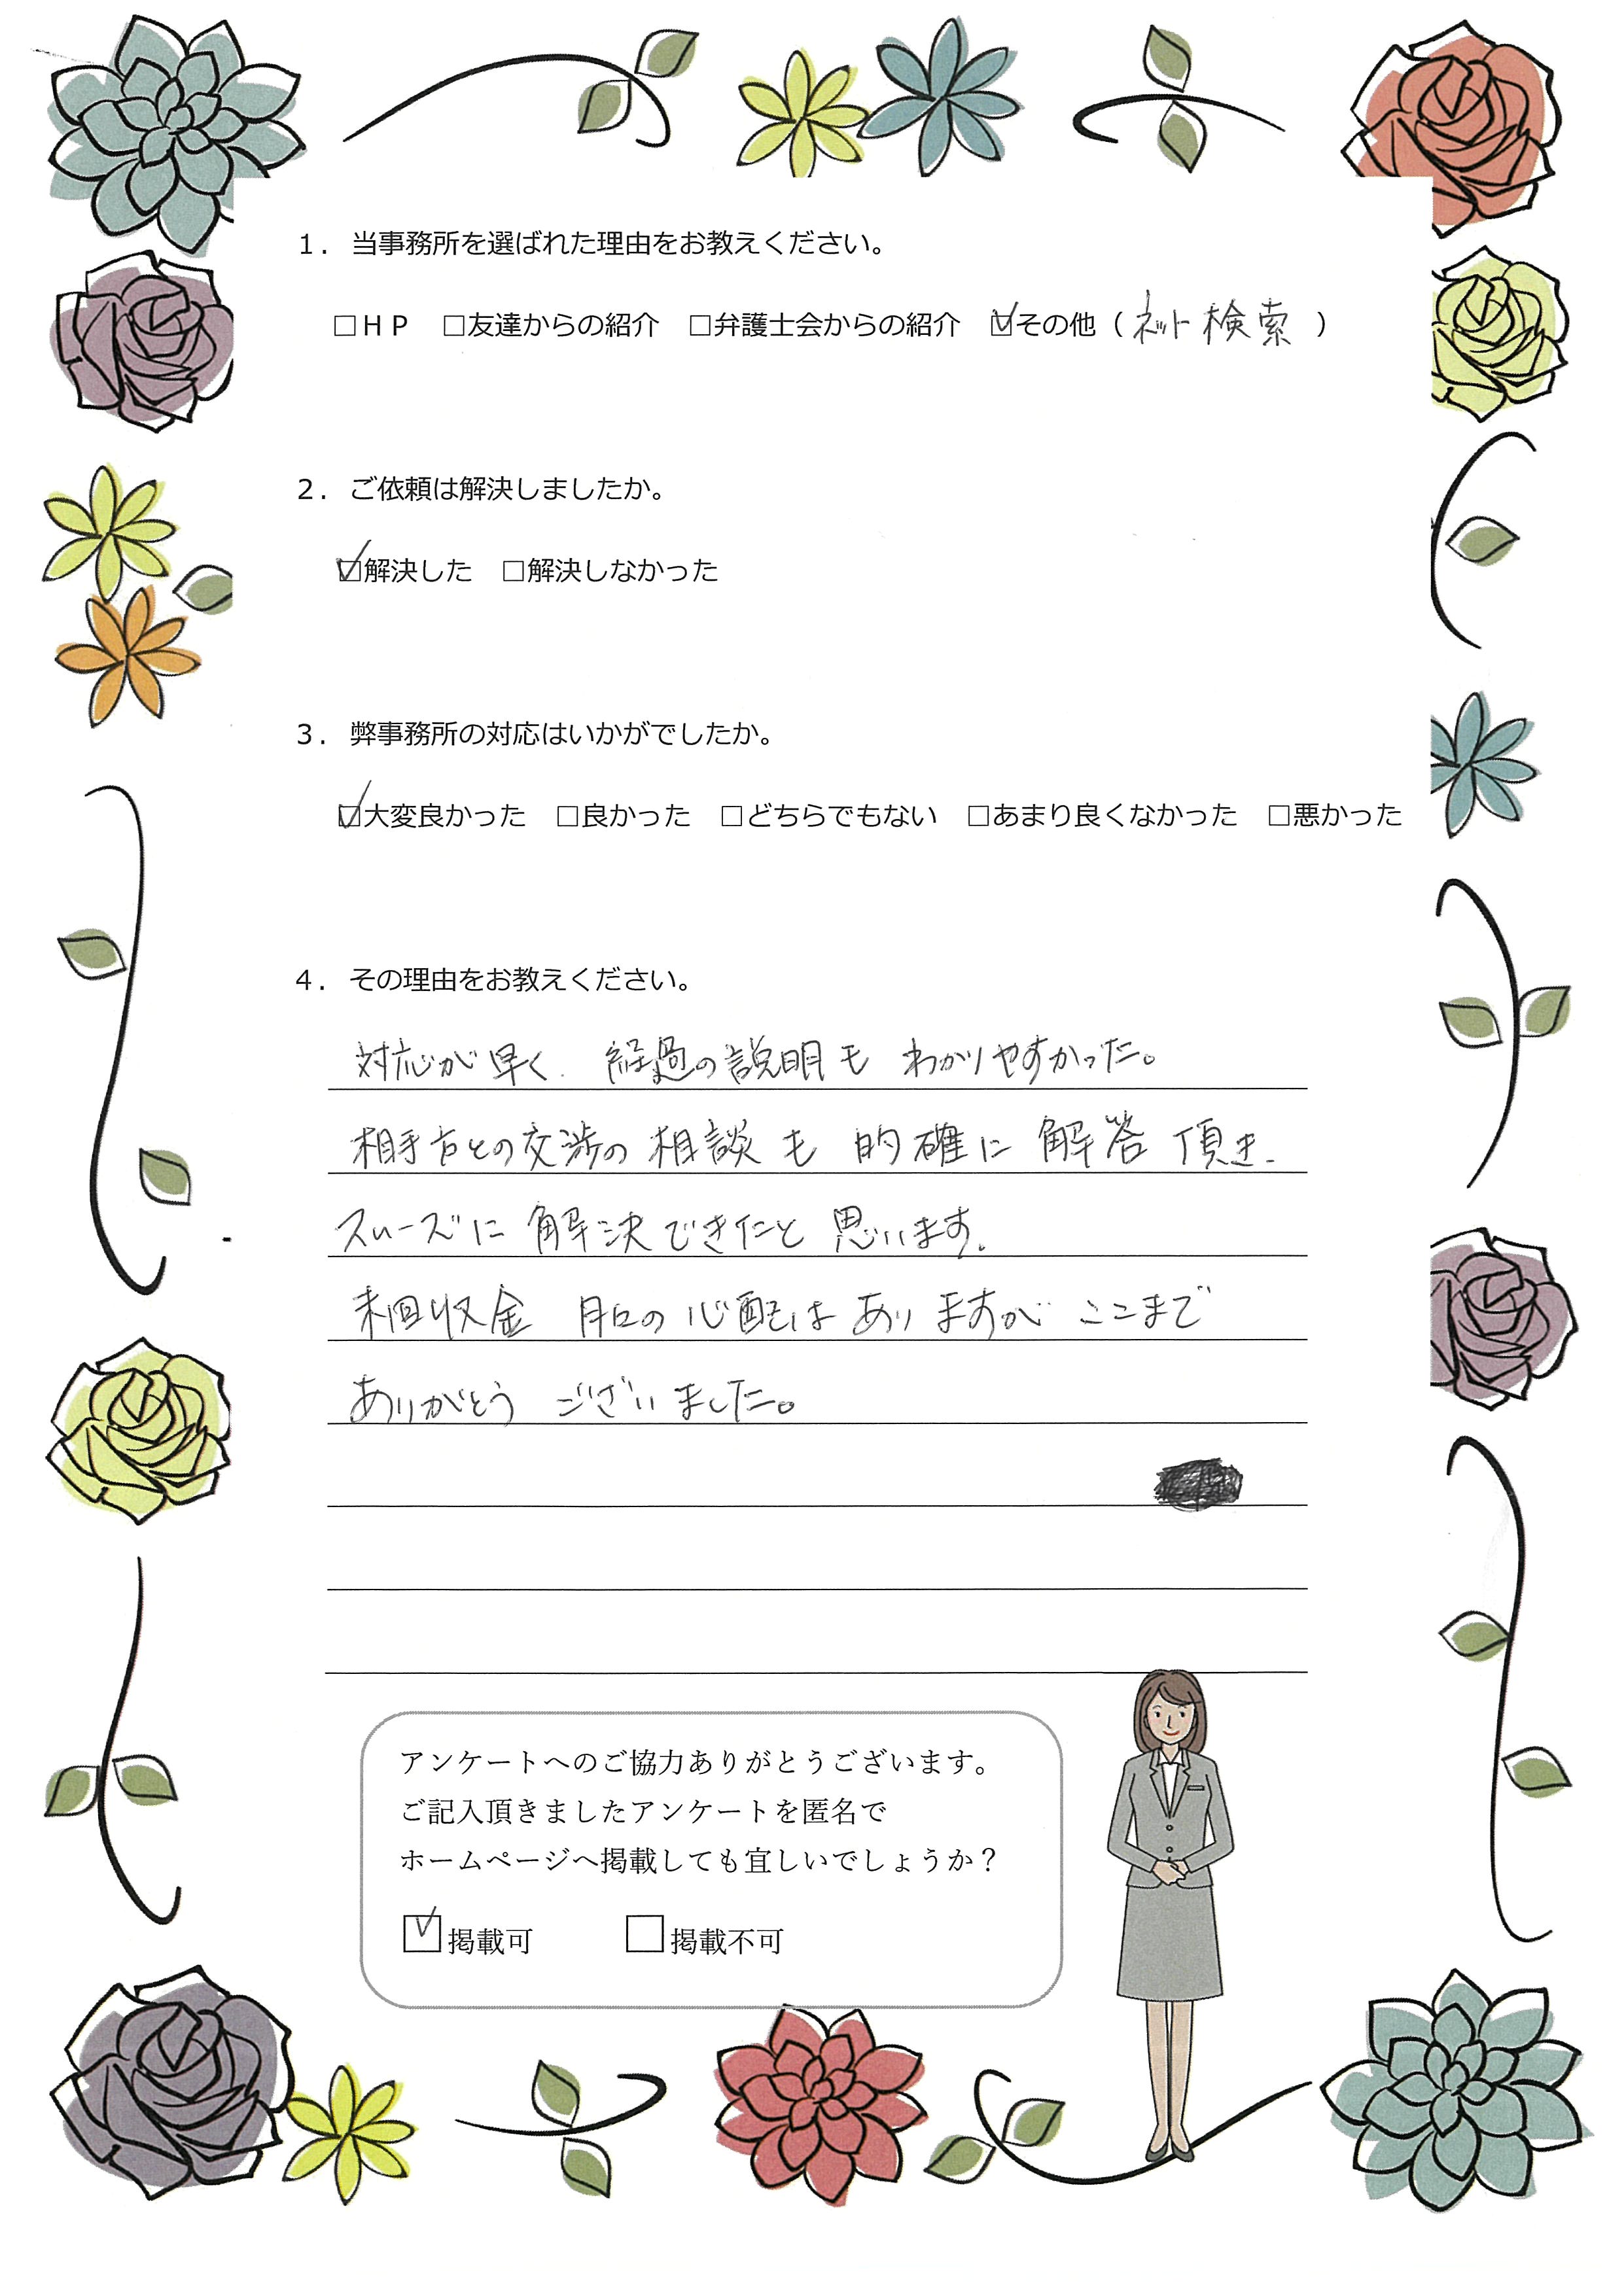 １．当事務所を選ばれた理由をお教えください。
□ＨＰ □友達からの紹介 □弁護士会からの紹介 ☑その他（ネット検索）
２．ご依頼は解決しましたか。
☑解決した □解決しなかった
３．弊事務所の対応はいかがでしたか。
☑大変良かった □良かった □どちらでもない □あまり良くなかった □悪かった
４．その理由をお教えください。
対応が早く、経過の説明もわかりやすかった。
相手方との交渉の相談も的確に解答頂き、
スムーズに解決できたと思います。
未回収金の心配はありますがここまで
ありがとうございました。
アンケートへのご協力ありがとうございます。
ご記入頂きましたアンケートを匿名で
ホームページへ掲載しても宜しいでしょうか？
☑掲載可 □掲載不可